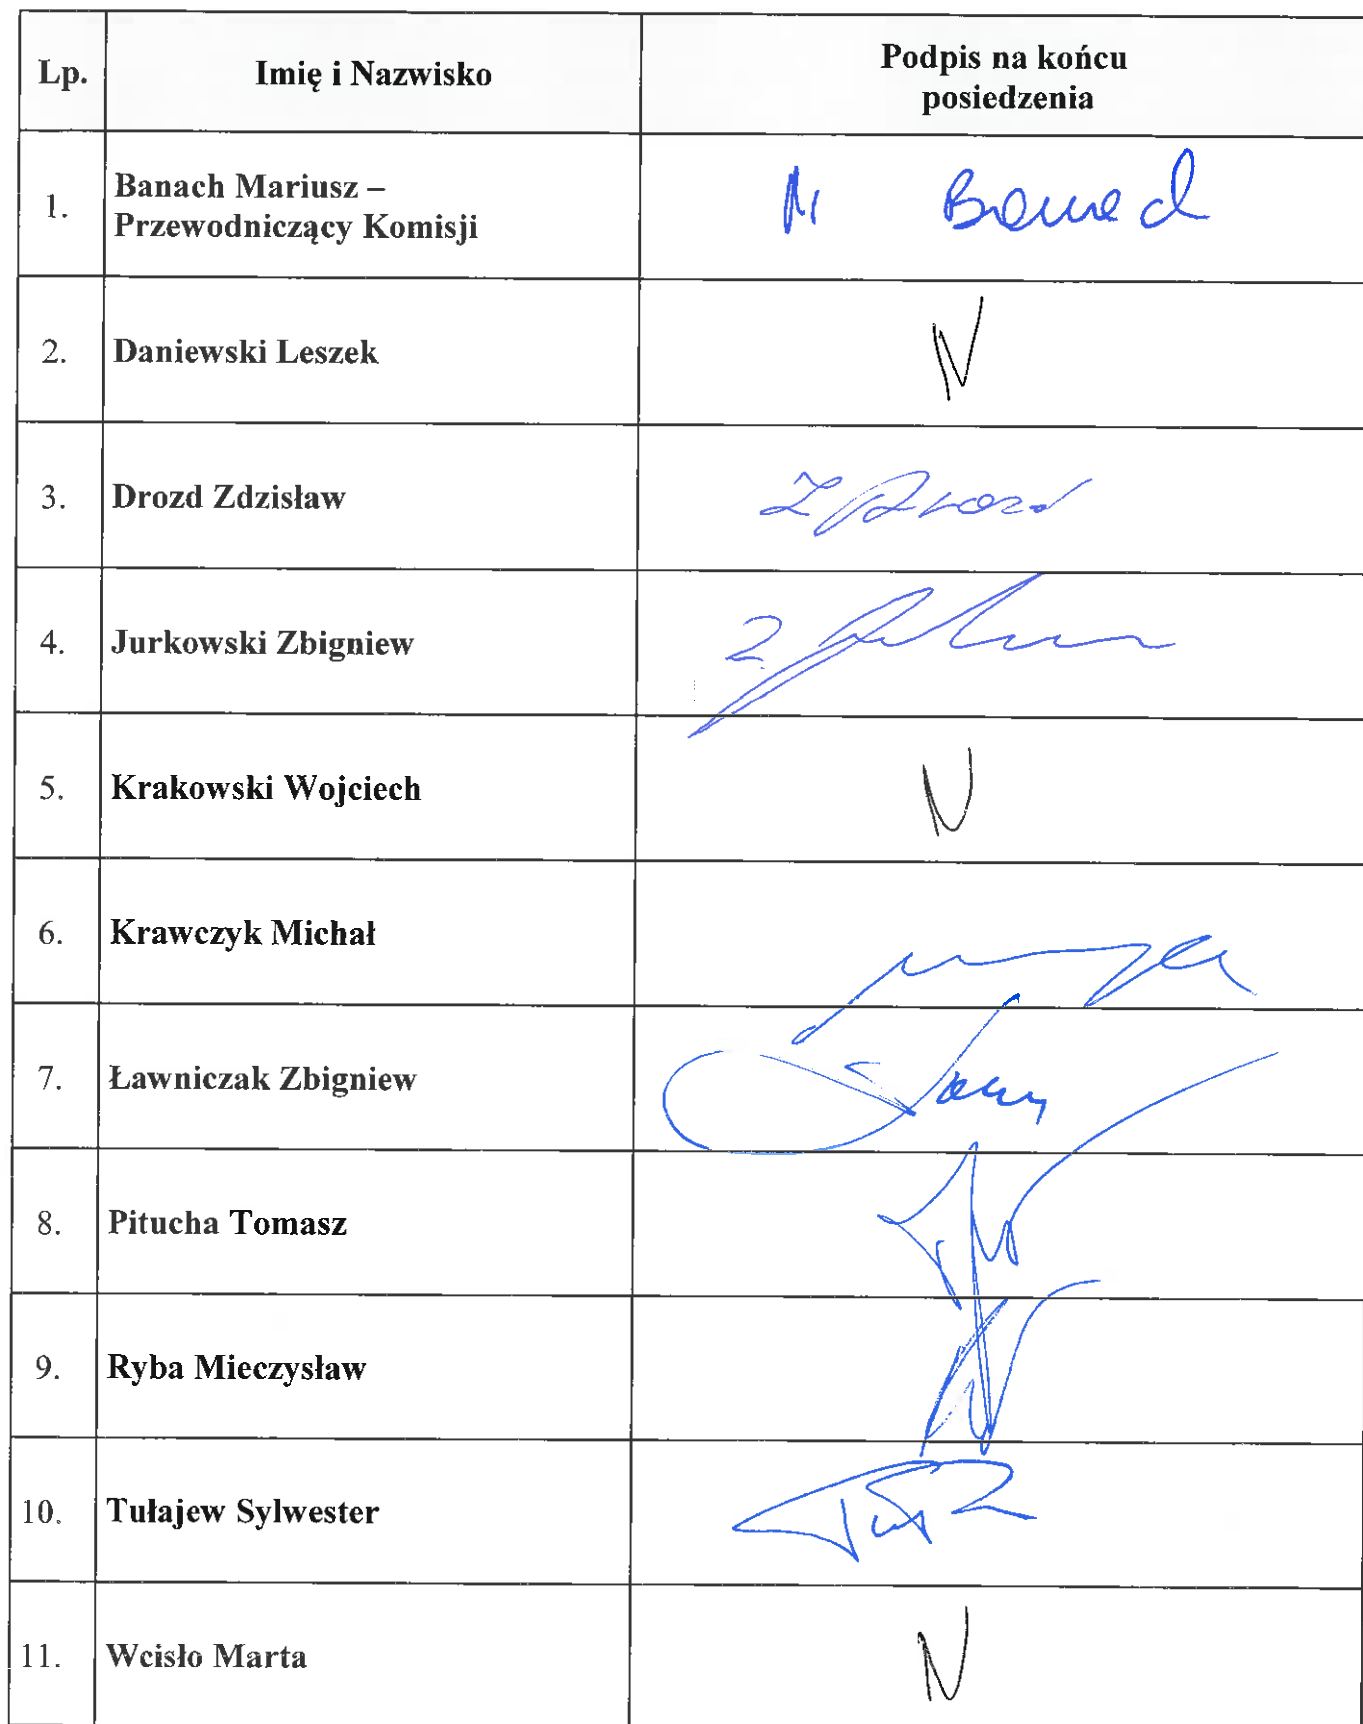 Lp.
Imię i Nazwisko
Podpis na końcu
posiedzenia
1.
Banach Mariusz –
Przewodniczący Komisji
M Banach
2.
Daniewski Leszek
N
3.
Drozd Zdzisław
Z Drozd
4.
Jurkowski Zbigniew
Z.
5.
Krakowski Wojciech
N
6.
Krawczyk Michał
7.
Ławniczak Zbigniew
8.
Pitucha Tomasz
9.
Ryba Mieczysław
10.
Tułajew Sylwester
11.
Wcisło Marta
N